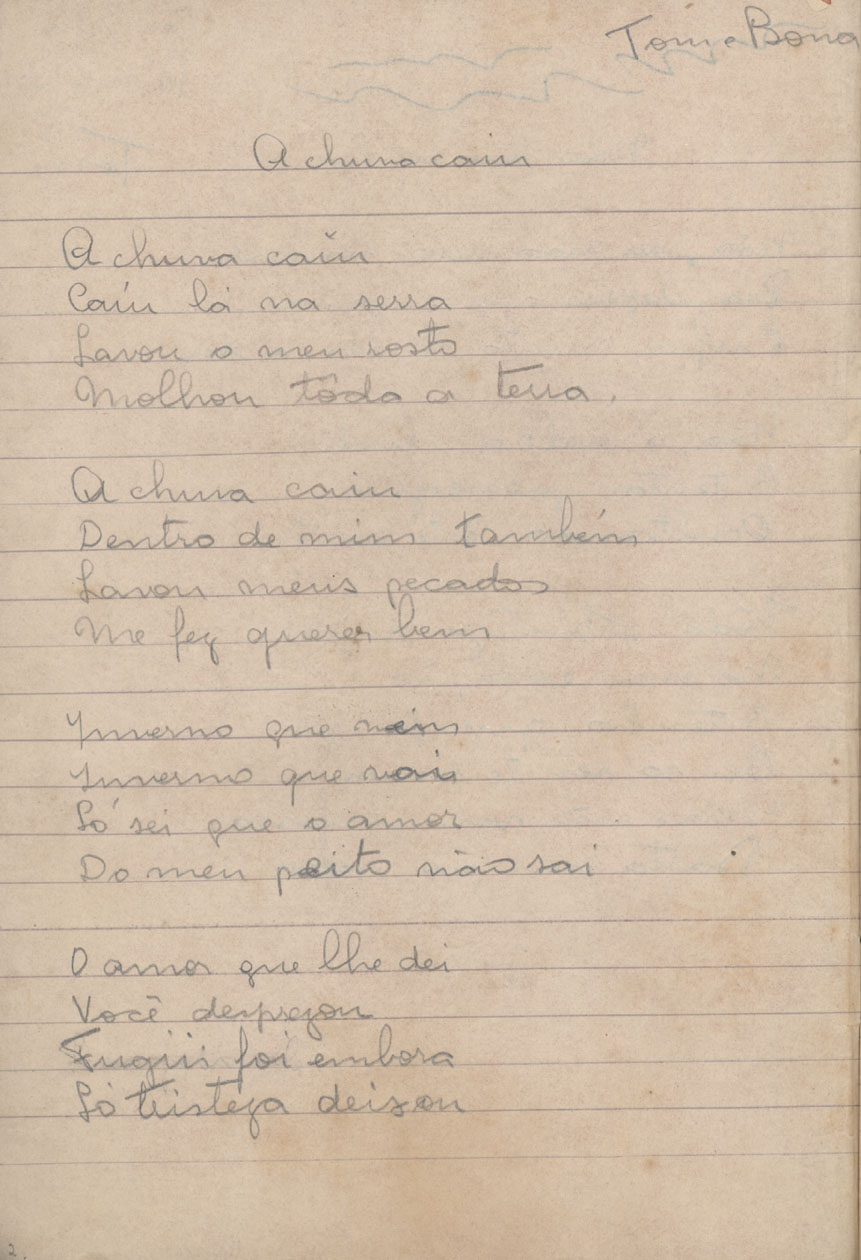 Tom e Bona
A chuva caiu
A chuva caiu
Caiu lá na serra
Lavou o meu rosto
Molhou tôda a terra.
A chuva caiu
Dentro de mim também
Lavou meus pecados
Me fez querer bem
Inverno que vem
Inverno que vai
Só sei que o amor
Do meu peito não sai
O amor que lhe dei
Você desprezou
Fugiu foi embora
Só tristeza deixou
2.